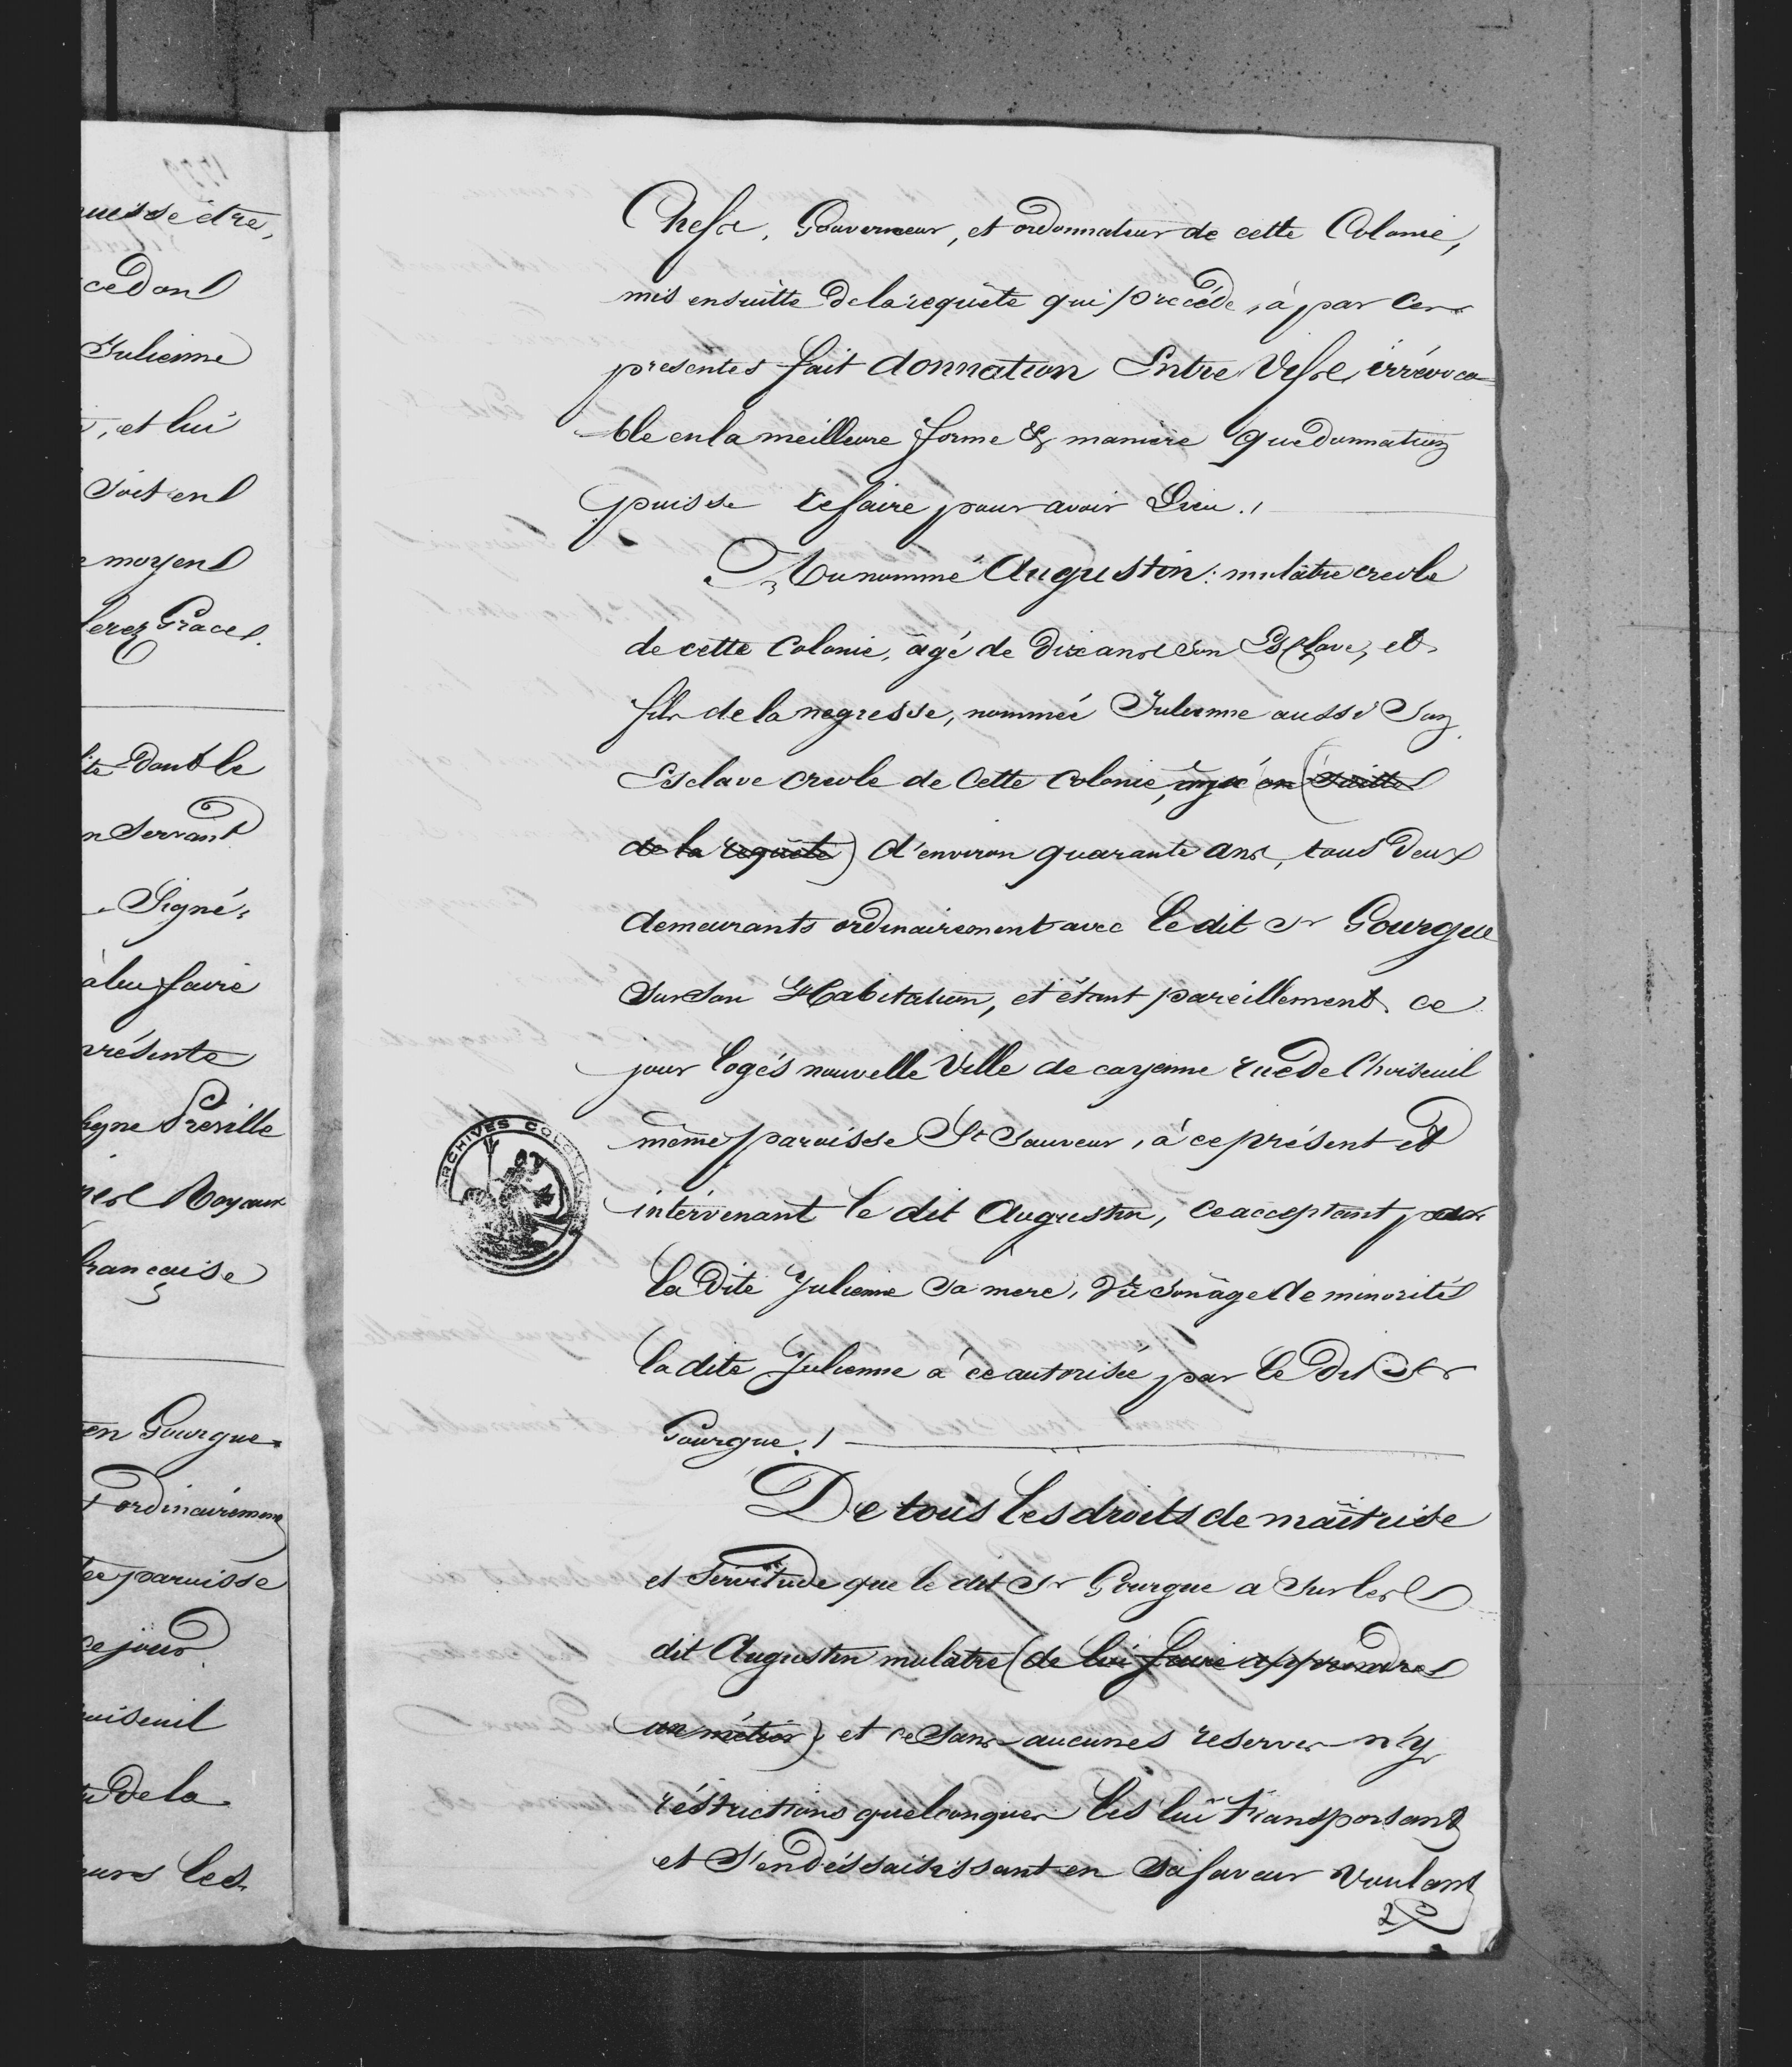 uisse être,
cedant
Julienne
, et lui
soit en
moyens
lerez Graces.
ite dont le
n servant
Signé:
à lui faire
présente
Préville
Royaux
française
en Gourgue
ordinairement
paroisse
ce jour
oiseuil
de la
eurs les
Chefs, Gouverneur, et ordonnateur de cette Colonie,
mis ensuitte de la requête qui précéde, à par Ces
presentes fait donnation Entre Vifs irrévoca-
ble en la meilleure forme & maniere que donnation
puisse se faire pour avoir Lieu./
Au nommé Augustin: mulâtre creole
de cette Colonie, âgé de Dix ans son Esclave, et
fils de la negresse, nommée Julienne aussi Son
Esclave creole de Cette Colonie, agée en (suitte
de la requête) d'environ quarante ans, tous Deux
demeurants ordinairement avec le dit Sr Gourgue
Sur son Habitation, et étant pareillement ce
jour logés nouvelle Ville de cayenne rue De Choiseuil
même paroisse St Sauveur, à ce présent et
intérvenant le dit Augustin, ce acceptant par
la Dite Julienne Sa mere, Vû son âge de minorité
la dite Julienne à ce autorisée par le Dit Sr
Gourgue./
De tous les droits de maîtrise
et Servitude que le dit Sr Gourgue a Sur les
dit Augustin mulâtre (de lui faire apprendre
un métier) et ce Sans aucunes reserves n'y
réstrictions quelconques les lui transportant
et S'en déssaisissant en Sa faveur Voulant
2
ARCHIVES COLO